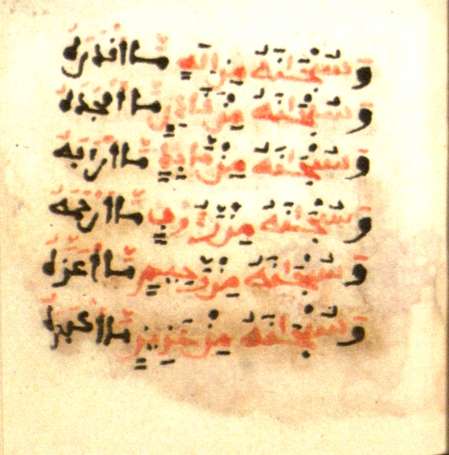 وَسُبْحَانَهُ مِنْ إِلَهٍ مَا أَقْدَرَهُ
وَسُبْحَانَهُ مِنْ قَادِرٍ مَا أَمْجَدَهُ
وَسُبْحَانَهُ مِنْ مَاجِدٍ مَا أَرْأَفَهُ
وَسُبْحَانَهُ مِنْ رَؤُوفٍ مَا أَرْحَمَهُ
وَسُبْحَانَهُ مِنْ رَحِيمٍ مَا أَعَزَّهُ
وَسُبْحَانَهُ مِنْ عَزِيزٍ مَا